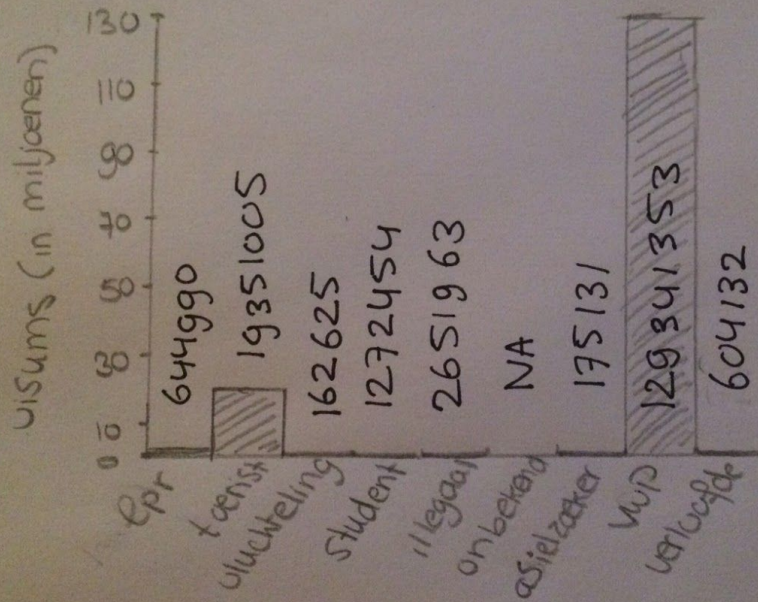 visums (in miljoenen)
130
110
90
70
50
30
10
0
644990
19351005
162625
1272454
2651963
NA
175131
129341353
604132
lpr
toerist
vluchteling
student
illegaal
onbekend
asielzoeker
vwp
verloofde